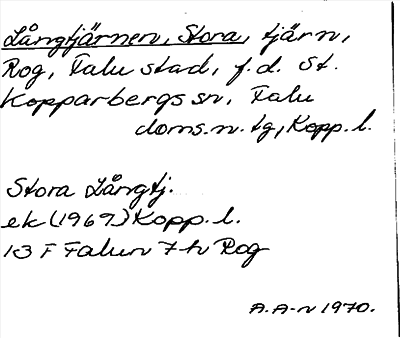 Långtjärnen, Stora, tjärn,
Rog, Falu stad, f.d. St.
Kopparbergs sn, Falu
doms.n. tg, Kopp. l.
Stora Långtj.
ek (1969) Kopp. l.
13 F Falun 7 h Rog
A. A-n 1970.